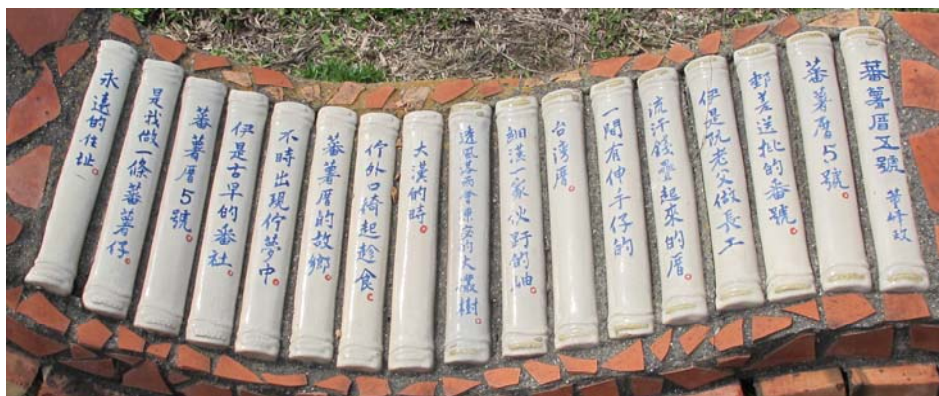 蕃薯厝五號
蕃薯厝5號。
郵差送批的番號。
伊是阮老父做長工
流汗錢疊起來的厝。
一間有伸手仔的
台湾厝。
細漢一家伙的岫。
透風落雨會大叢樹。
大漢的時。
佇外口徛起趁食。
蕃薯厝的故鄉。
不時出現佇夢中。
伊是古早的番社。
蕃薯厝5號。
是我做一條蕃薯仔。
永遠的住址。